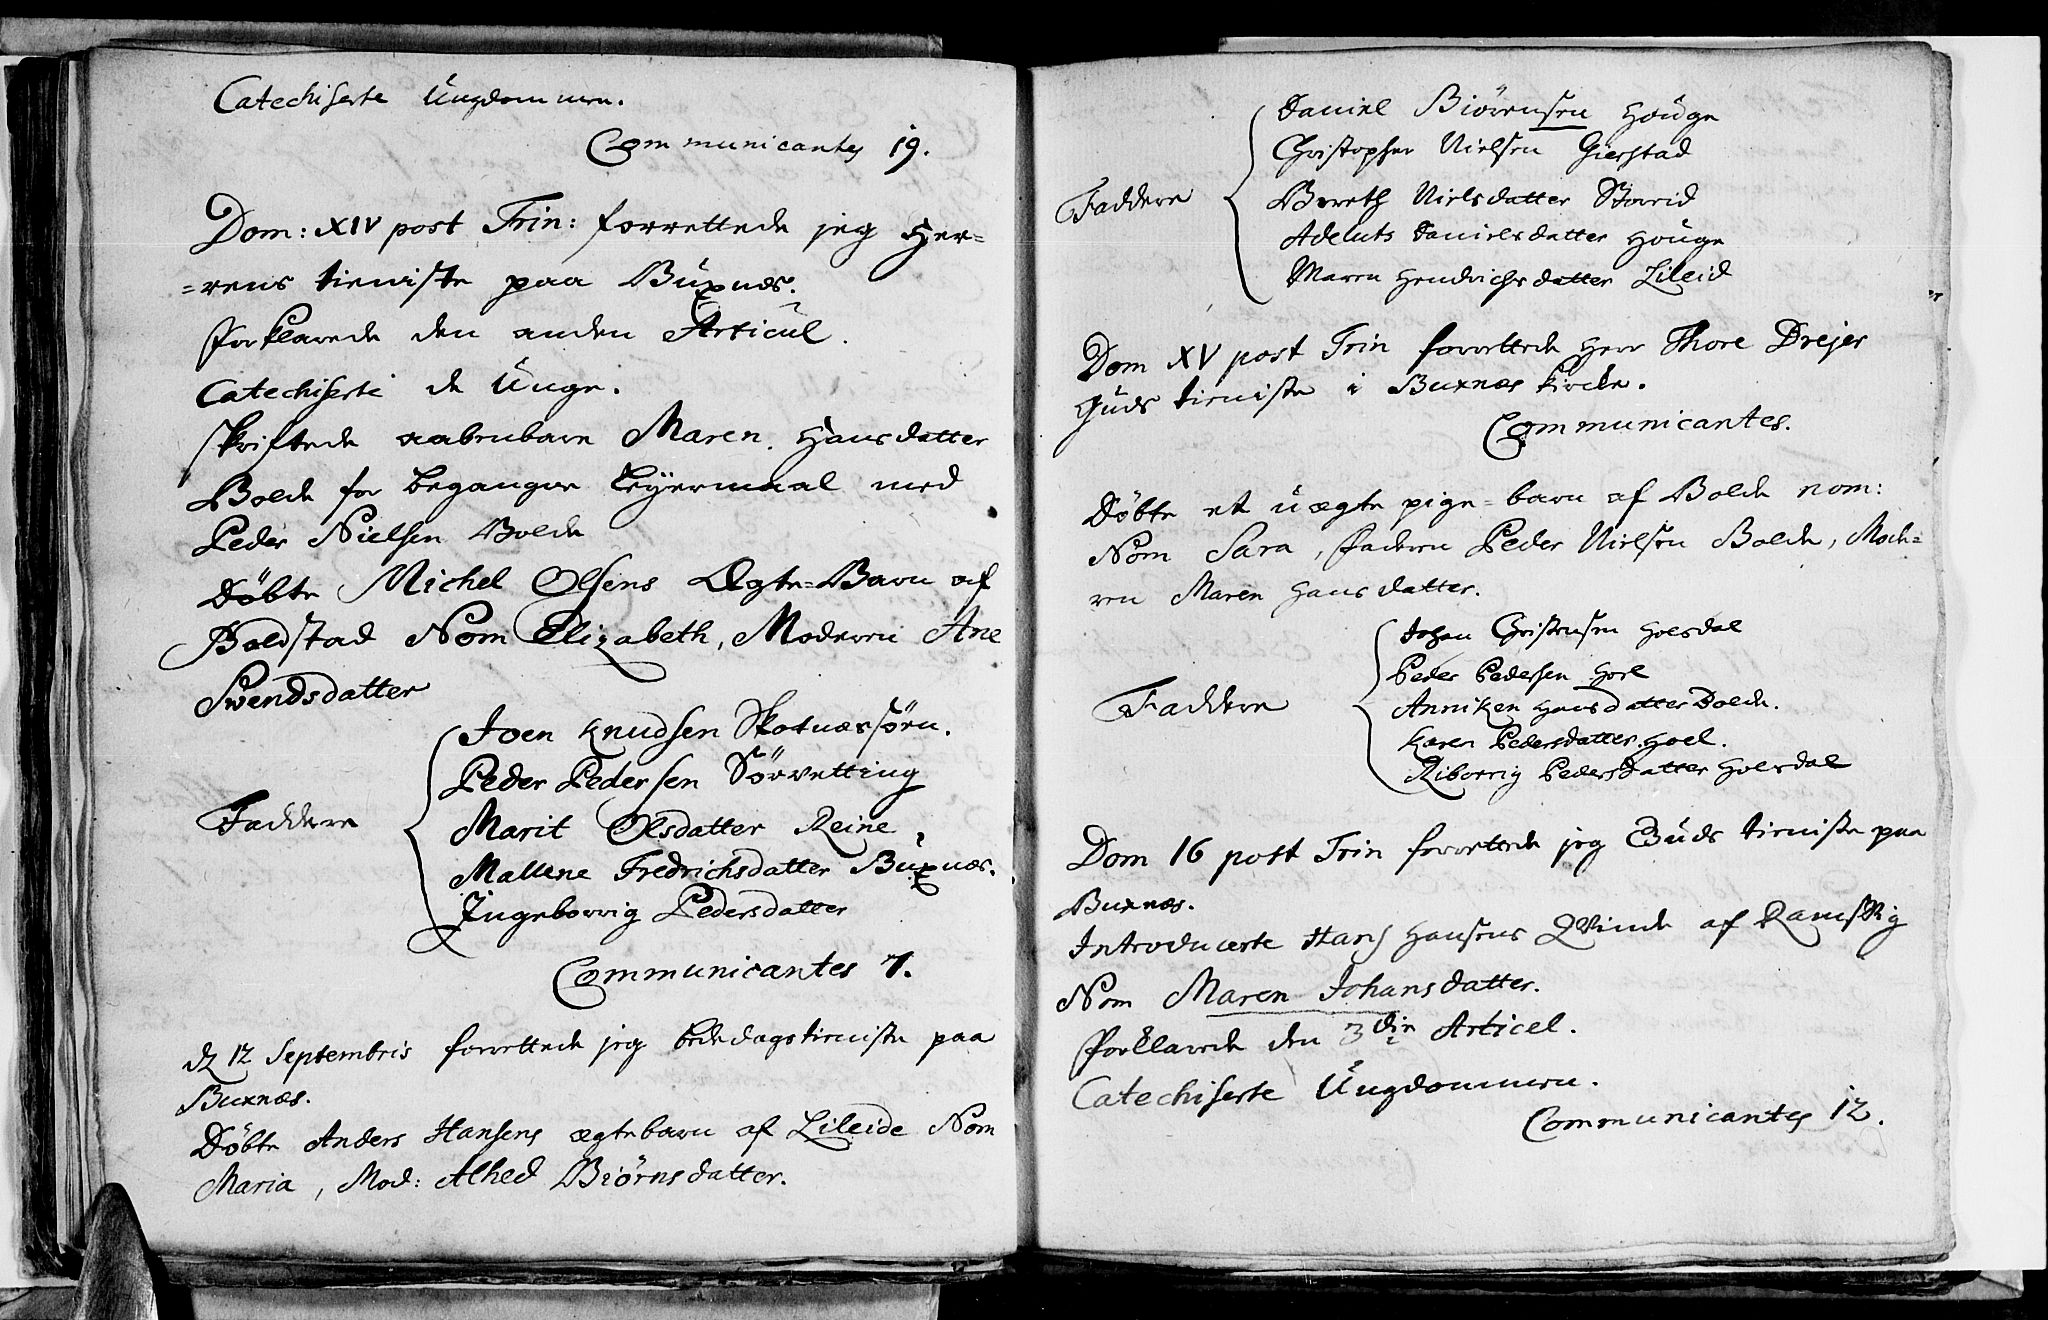 Catechiserte Ungdommen.
Communicantes 19.
Dom: XIV post Trin: forrettede jeg Her=
=rens tieniste paa Buxnæs.
forklarede den anden Articul.
Catechiserte de Unge.
skriftede aabenbare Maren Hansdatter
Bolde for begangne Leyermaal med
Peder Nielsen Bolde
Døbte Michel Olsens Ægte=Barn af
Boldstad Nom Elizabeth, Moderen Ane
Swendsdatter
Faddere
Joen Knudsen Skotnæssørn.
Peder Pedersen Sørvetting
Marit Olsdatter Reine,
Mallene Fredrichsdatter Buxnæs.
Ingeborrig Pedersdatter
Communicantes 7.
d 12 Septembris forrettede jeg bededagstieniste paa
Buxnæs.
Døbte Anders Hansens ægtebarn af Lileide Nom
Maria, Mod: Alhed Biørnsdatter.
Faddere
Daniel Biørensen Houge
Christopher Nielsen Gierstad
Bereth Nielsdatter
Adeluts Danielsdatter Houge
Maren Hendrichsdatter Lileid
Dom XV post Trin forrettede Herr Thore Drejer
Guds tieniste i Buxnæs kircke.
Communicantes.
Døbte et uægte pige=barn af Bolde nom:
Nom Sara, faderen Peder Nielsen Bolde, Mode=
ren Maren Hansdatter.
Faddere
Johan Christensen Holsdal
Peder Pedersen Hoel
Anniken Hansdatter Bolde.
Karen Pedersdatter Hoel.
Riborrig Pedersdatter Holsdal
Dom 16 post Trin forrettede jeg Guds tieniste paa
Buxnæs.
Introducerte Hans Hansens Qvinde af Ramsvig
Nom Maren Johansdatter.
forklarede den 3die Articel.
Catechiserte Ungdommen.
Communicantes 12.